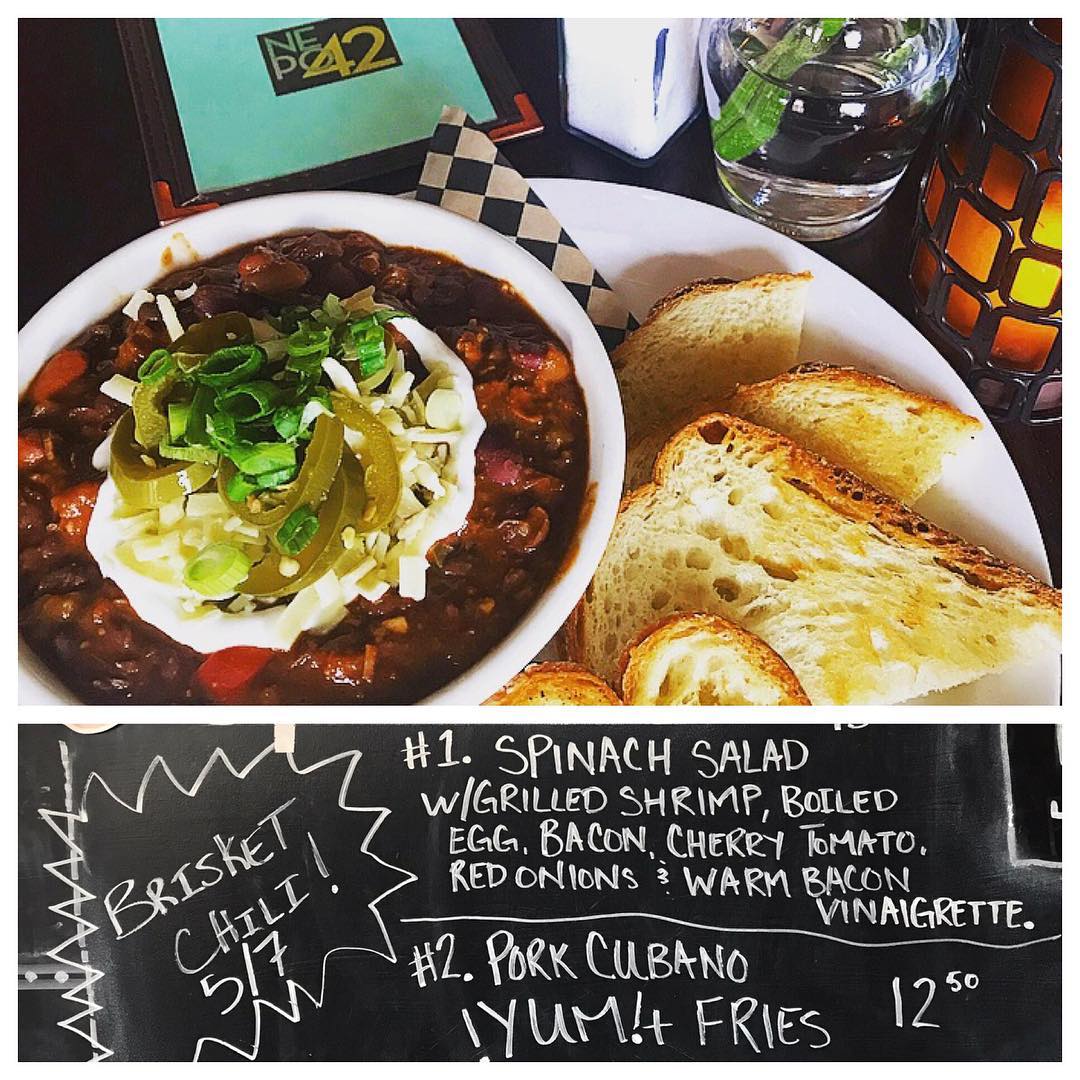 NE
PO42
#1. SPINACH SALAD
W/GRILLED SHRIMP, BOILED
EGG, BACON, CHERRY TOMATO,
RED ONIONS & WARM BACON
VINAIGRETTE.
BRISKET
CHILI!
5/7
#2. PORK CUBANO
¡YUM!+ FRIES 12⁵⁰